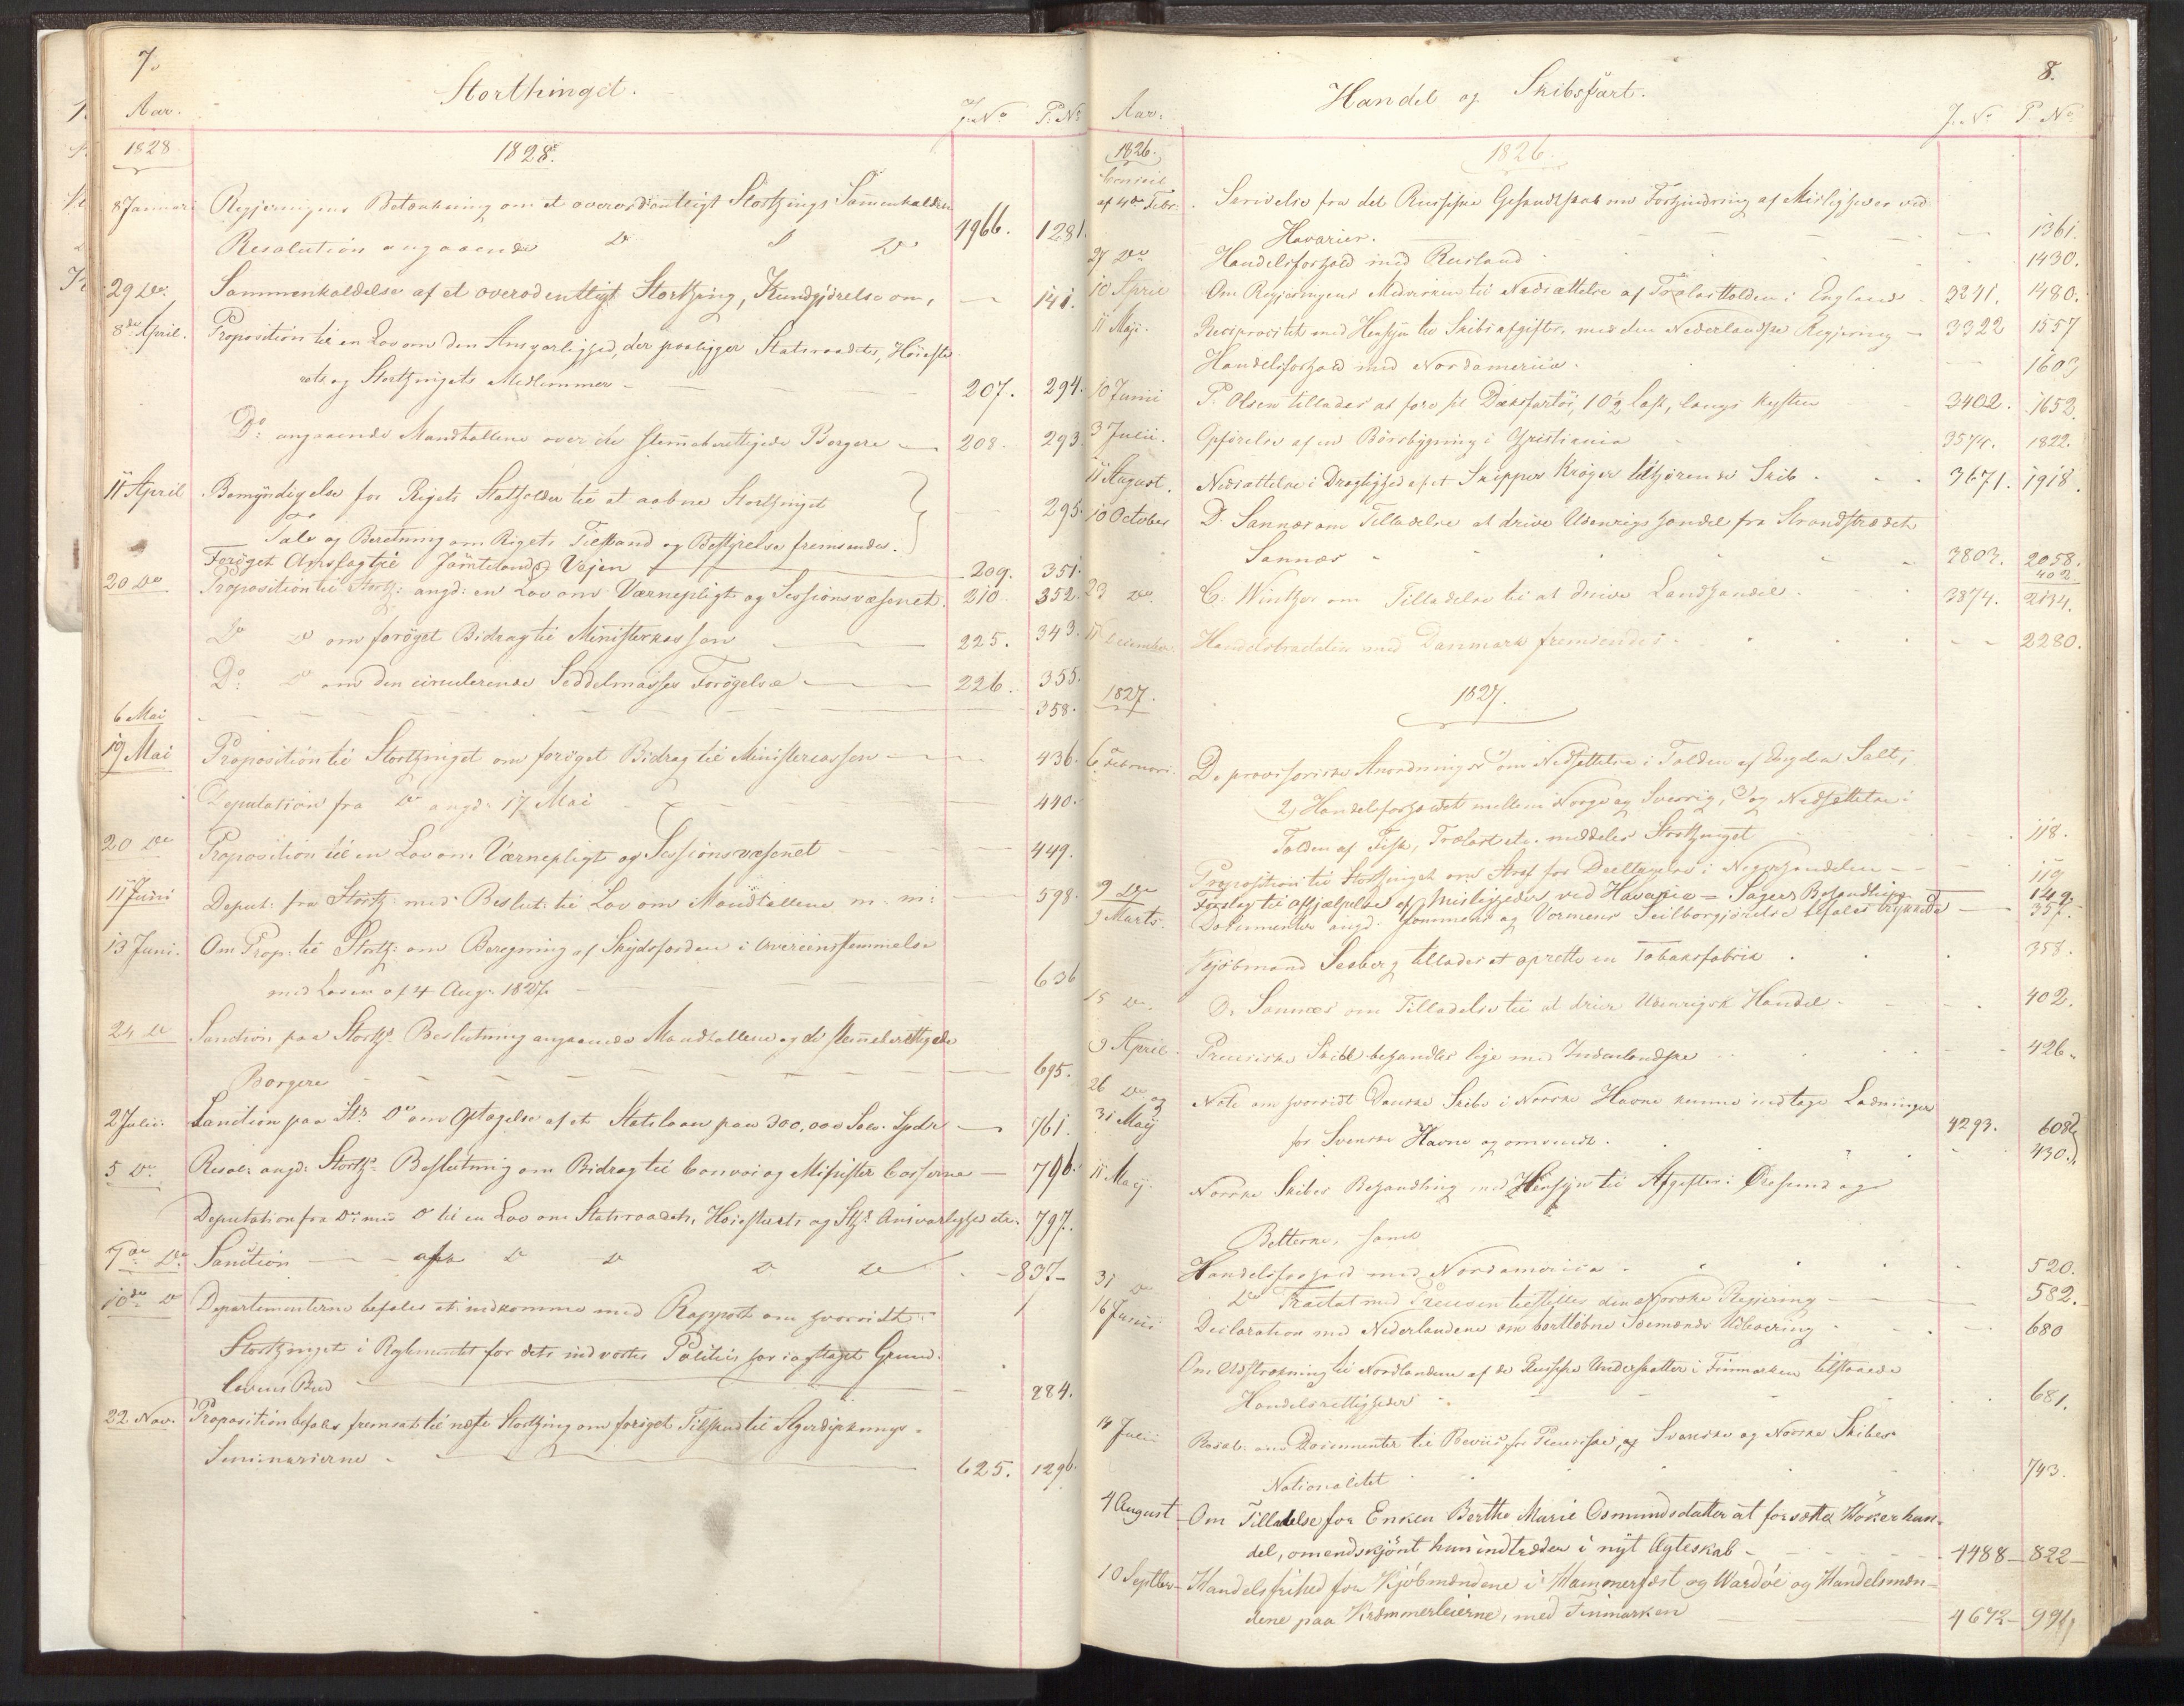 7.
Storthinget.
Aar. J. No P. No
1828 1828.
8 Januar Regjeringens Betænkning om et overordentligt Storthings Sammenkaldelse
Resolution angaaende Do Do 1966. 1281.
29 Do. Sammenkaldelse af et overodentligt Storthing, Kundgjörelse om, — 141.
8de April. Proposition til en Lov om den Ansvarlighed, der paaligger Statsraadets, Höieste
rets og Storthingets Medlemmer — 207. 294.
Do. angaaende Mandtallene over de stemmeberettigede Borgere — 208. 293.
11 April Bemyndigelse for Rigets Statholder til at aabne Storthinget
Tale og Beretning om Rigets Tilstand og Bestyrelse fremsendes. 295.
Foröget Anslag til Jämtelands Vejen — 209. 351.
20 Do Proposition til Storth: angd: en Lov om Værnepligt og Sessionsvæsenet. 210 352.
Do Do om foröget Bidrag til Ministerkassen — 225. 343.
Do. Do om den circulerende Seddelmasses Forögelse — 226. 355.
6 Mai — 358.
19 Mai Proposition til Storthinget om foröget Bidrag til Ministercassen — 436.
Deputation fra Do angd: 17 Mai — 440.
20 Do Proposition til en Lov om Værnepligt og Sessionsvæsenet — 449.
11 Juni Deput: fra Storth: med Beslut: til Lov om Mandtallene m: m: — 598.
13 Juni. Om Prop: til Storth: om Beregning af Skydsforden i Overeensstemmelse
med Loven af 4 Aug: 1827. — 636
24 Do Sanction paa Storths Beslutning angaaende Mandtallene og de stemmeberettigede
Borgere — 695.
2 Julii. Sanction paa Sts. Do om Optagelse af et Statslaan paa 300,000 Sölv. Spdr — 761.
5 Do. Resol: angd: Storths. Beslutning om Bidrag til Convoi og Minister Casserne — 796.
Deputation fra Do: med Do til en Lov om Statsraadets, Höiesterets og Sths. Ansvarlighed etc. 797.
7de Do. Sanction — Do Do Do Do — 837—
10de Do Departementerne befales at indkomme med Rapport om hvorvidt
Storthinget i Reglementet for dets indvortes Politie har iagttaget Grund-
lovens Bud — 884.
22 Nov. Proposition befales fremsat til næste Storthing om foröget Tilskud til Agerdyrknings-
Seminarierne — 625. 1296.
8.
Handel og Skibsfart.
Aar. J. No P. No
1826. 1826.
af 4de Febr. Skrivelse fra det Russiske Gesandtskab om Forhindring af Misligheder ved
Havarier. — 1361.
27 Do Handelsforhold med Rusland 1430.
10 April Om Regjeringens Medvirken til Nedsættelse af Trælasttolden i England 3241. 1480.
11 Maji. Reciprocitet med Hensyn til Skibsafgifter, med den Nederlandske Regjering — 3322 1557
Handelsforhold med Nordamerica. 1603
10 Junii P. Olsen tillades at före sit Dæksfartöi, 10½ Læst, langs Kysten 3402. 1652.
3 Julii. Opförelse af en Börsbygning i Christiania 3574. 1822.
11 August. Nedsættelse i Drægtighed af et Skipper Kröger tilhörende Skib 3671. 1918.
10 October D. Sannæs om Tilladelse at drive Udenrigs Handel fra Strandstrædet
Sannæs 3803. 2058.
402
23 Do. C. Winther om Tilladelse til at drive Landhandel. 3874. 2134.
11 December. Handelstractaten med Danmark fremsendes. — 2280.
1827. 1827.
6 Februari. De provisoriske Anordninger 1) om Nedsættelse i Tolden af Engelsk Salt,
2) Handelsforholdet mellem Norge og Sverrig, 3) og Nedsættelse i
Tolden af Fisk, Trælast etc. meddeles Storthinget 118.
Proposition til Storthinget om Straf for Deeltagelse i Negerhandelen — 119
9 Do Forslag til Afhjælpelse af Misligheder ved Havarie-Sagers Behandling — 149.
9 Marts. Dokumenter angd: Glommens og Vormens Seilbargjörelse befales trykkede — 357.
Kjöbmand Seeberg tillades at oprette en Tobaksfabrik 358.
15 Do. D. Sannæs om Tilladelse til at drive Udenrigsk Handel — 402.
9 April. Preussiske Skibe behandles lige med Indenlandske 426.
26 Do og Note om hvorvidt Danske Skibe i Norske Havne kunne indtage Ladninger
31 Maij for Svenske Havne og omvendt. 4293. 608
430.
11 Maij. Norske Skibes Behandling med Hensyn til Afgifter i Öresund og
Belterne, samt
Handelsforhold med Nordamerica — 520.
31 Do Do Tractat med Preusen tilstilles den Norske Regjering — 582.
16 Junii Declaration med Nederlandene om bortlöbne Söemænds Udlevering — 680
Om Udstrækning til Nordlandene af de Russiske Undersaatter i Finmarken tilstaaede
Handelsrettigheder — 681.
14 Julii Resol: om Documenter til Beviis for Preussiske, og Svenske og Norske Skibes
Nationalitet 743.
4 August — Om Tilladelse for Enken Berthe Marie Osmundsdatter at forsætte Hökerhan-
del, omendskjönt hun indtræder i nyt Ægteskab — 4488 — 822 —
10 Septber — Handelsfrihed for Kjöbmændene i Hammerfest og Wardöe og Handelsmæn-
dene paa Kræmmerleierne, med Finmarken 4672 — 991